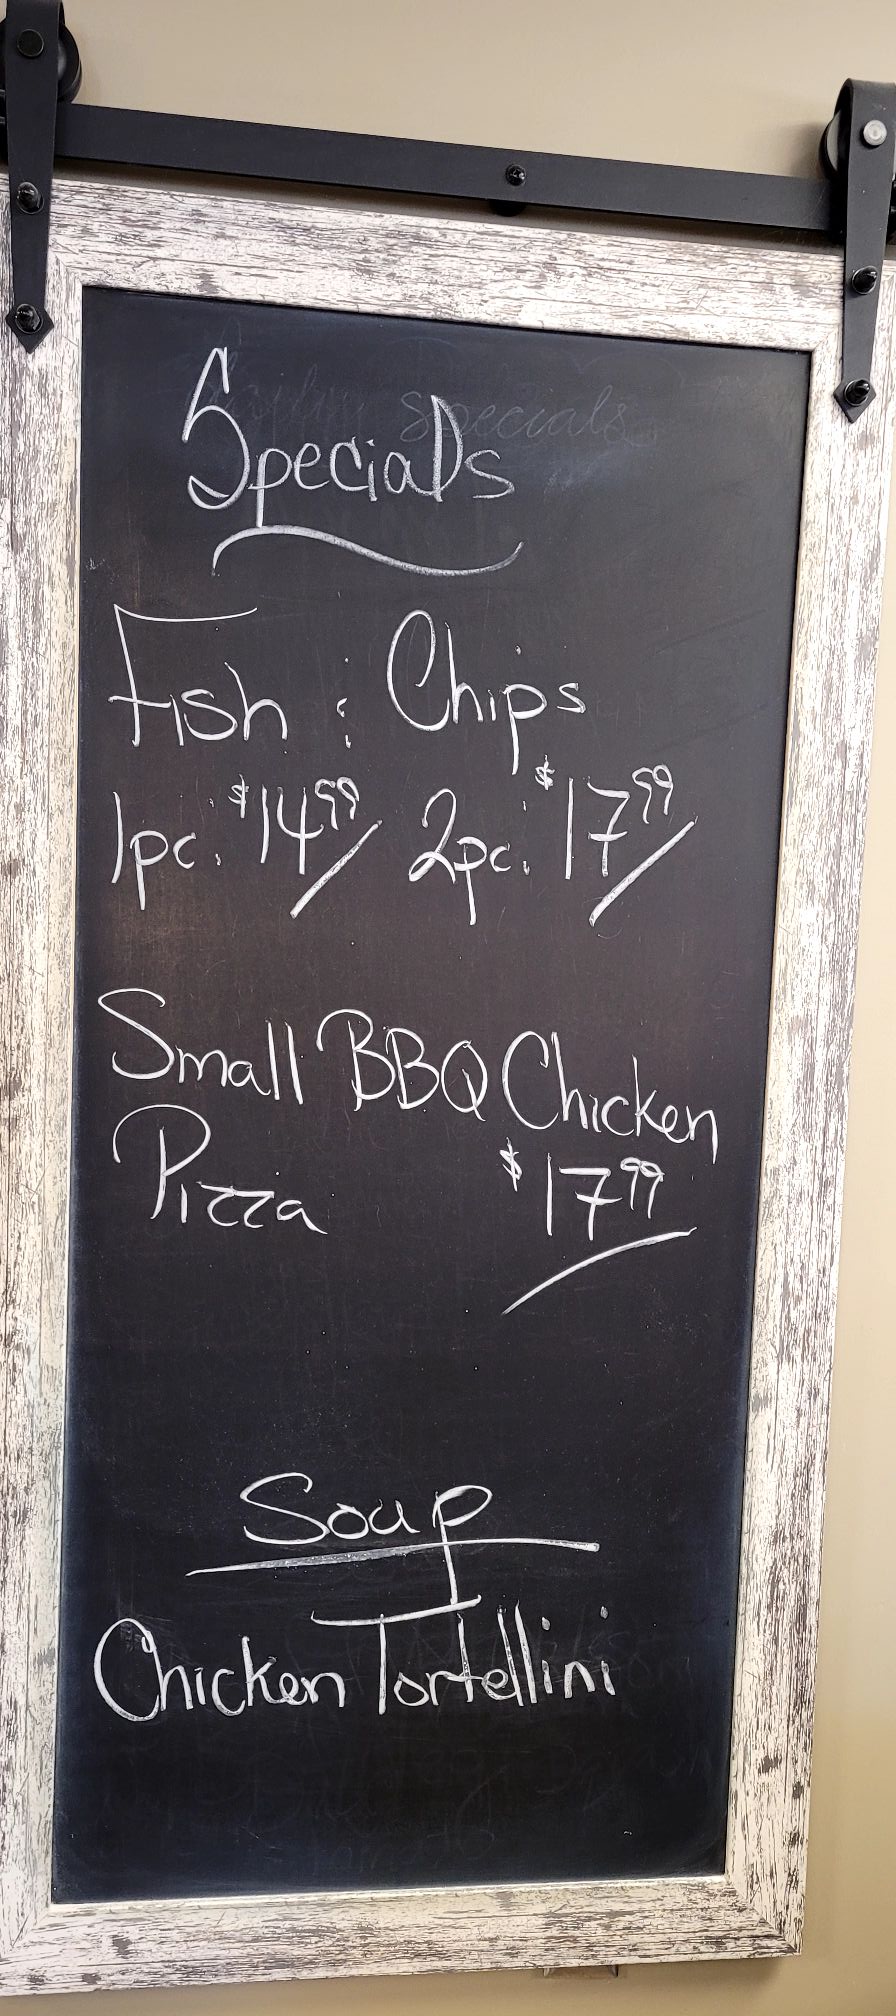 Specials
Fish : Chips
1pc. $14.99 2pc. $17.99
Small BBQ Chicken
Pizza $17.99
Soup
Chicken Tortellini